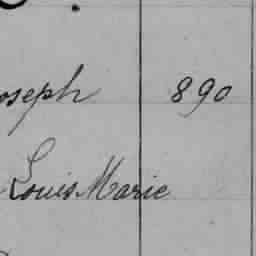 oseph 890
Louis Marie